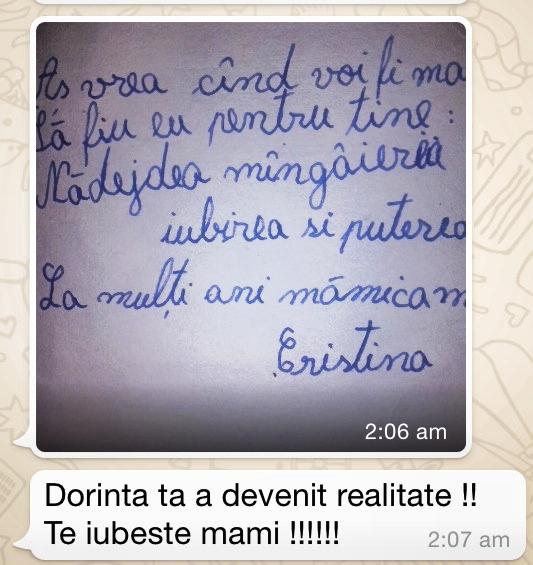 As vrea cînd voi fi ma
Să fiu eu pentru tine :
Nădejdea mîngâierea
iubirea si puterea
La mulți ani mămica m
Cristina
2:06 am
Dorinta ta a devenit realitate !!
Te iubeste mami !!!!!!
2:07 am